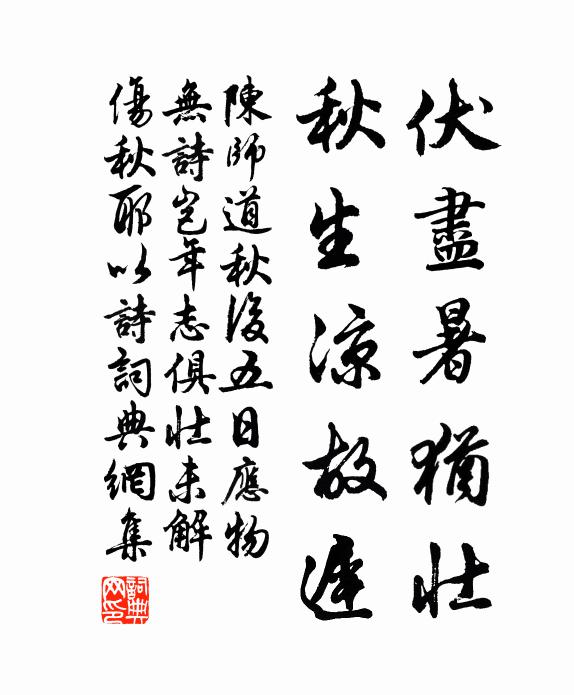 伏盡暑猶壯
秋生涼故遲
陳師道秋後五日應物
無詩豈年志俱壯未解
傷秋耶以詩詞典網集
詞典網印